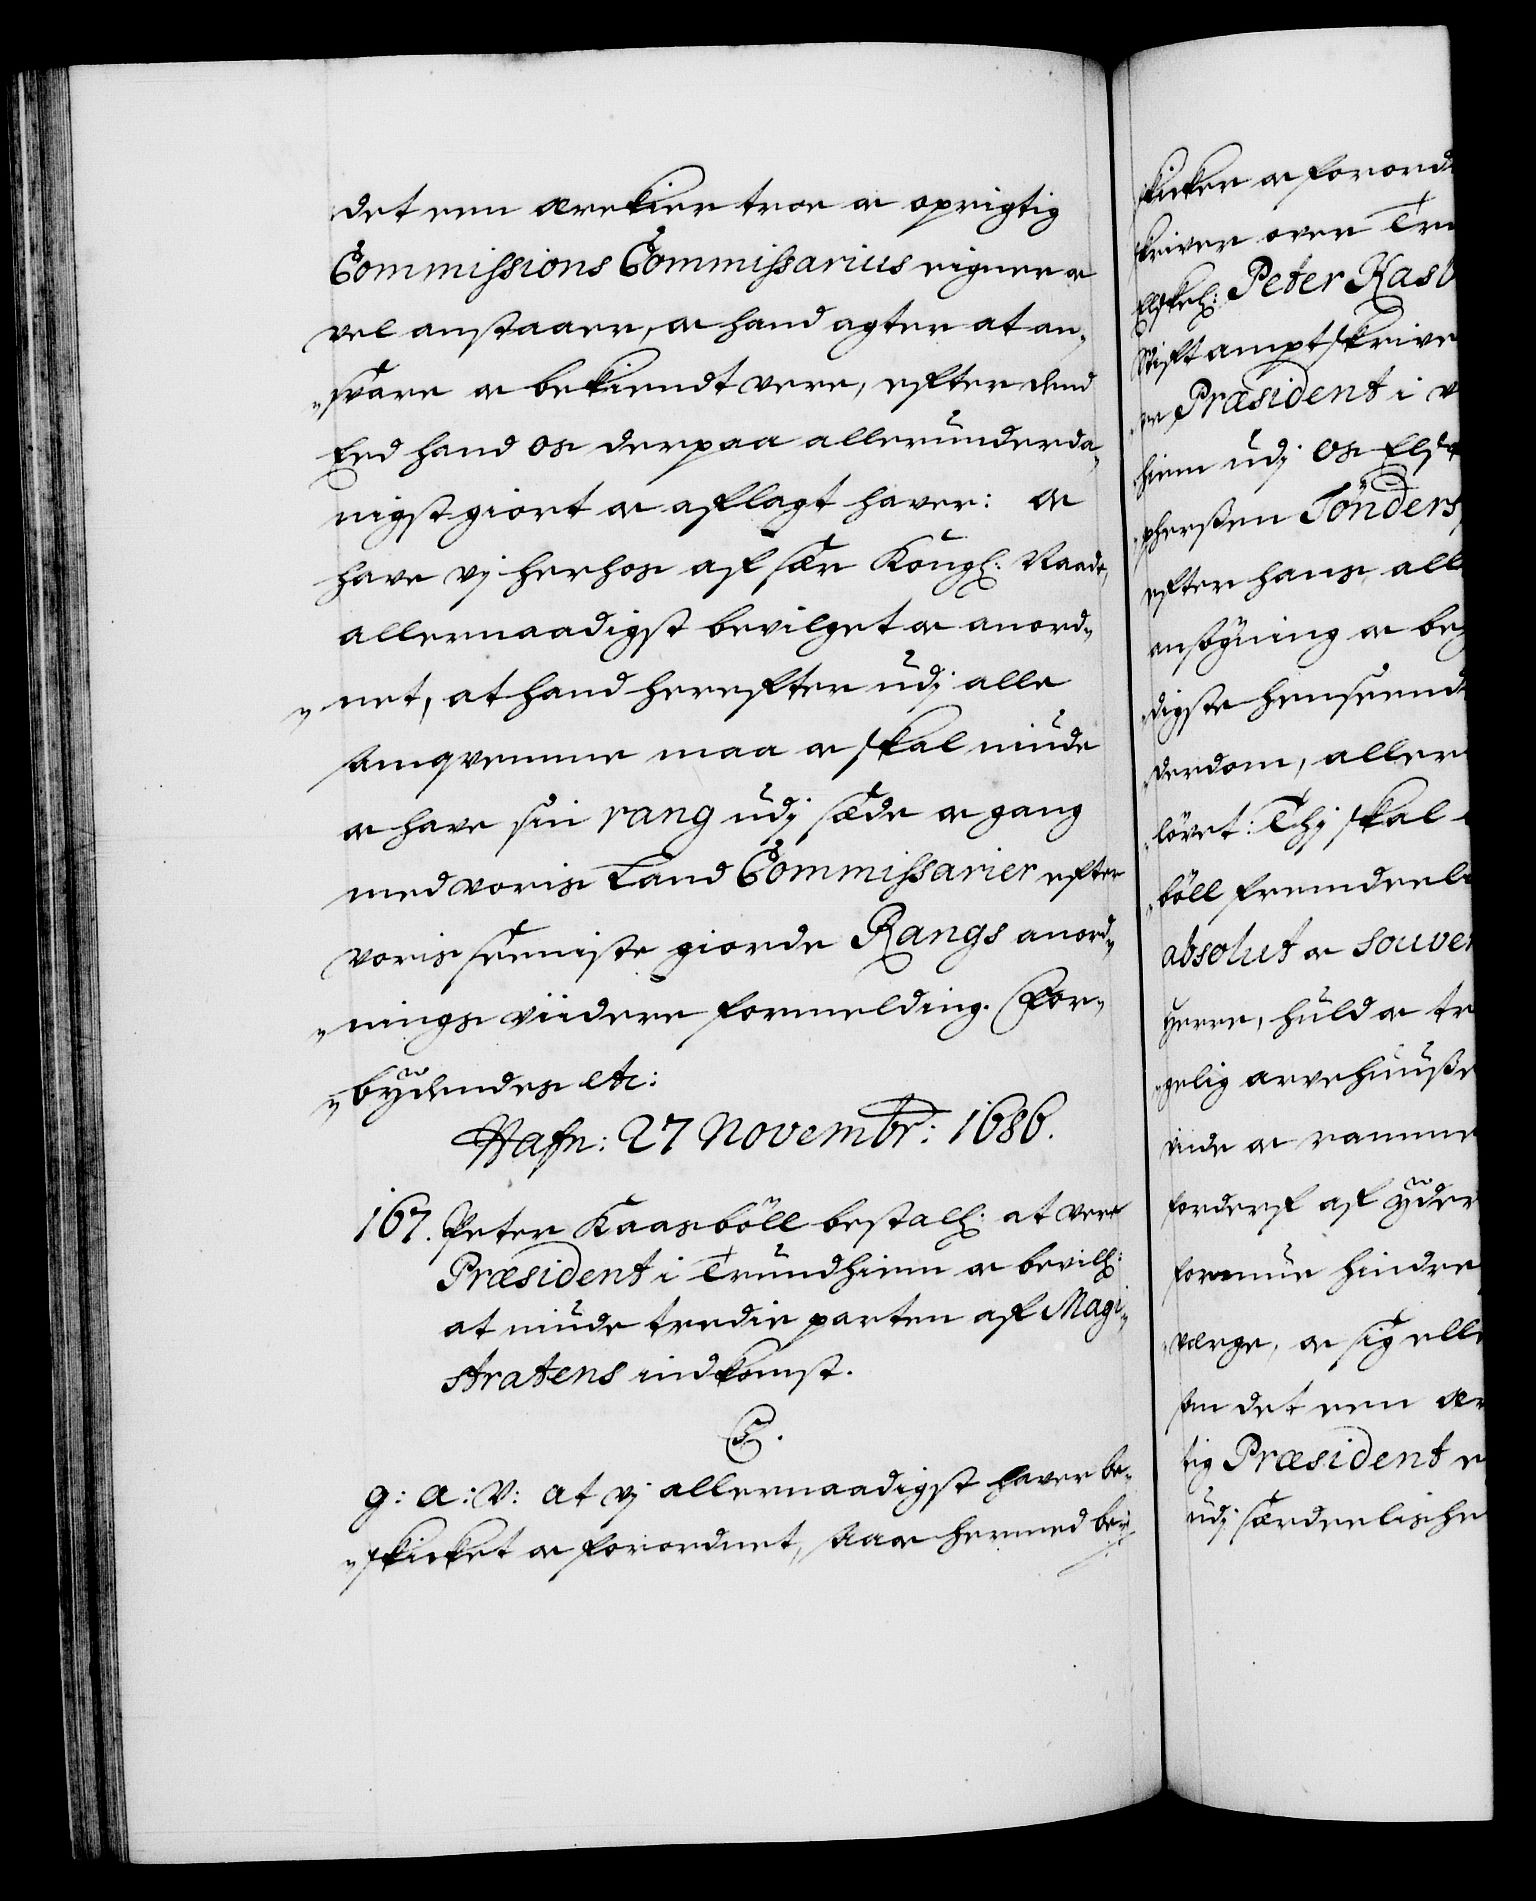 det een ærekier troe oc oprigtig
Commissions Commissarius eigner oc
vel anstaaer, oc hand agter at an¬
„svare oc bekiendt vere, efter dend
Eed hand os derpaa allerunderda¬
nigst giort oc aflagt haver: oc
have vj herhos af sær Kongl: Naade,
allernaadigst bevilget oc anord¬
„net, at hand herefter udj alle
samqvemme maa oc skal niude
oc have sin rang udj sæde oc gang
med voris Land Commissarier efter
voris seeniste giorde Rangs anord¬
„nings viidere formelding. For¬
„bydendes etc:
Hafn: 27 Novembr: 1686.
167. Peter Kaasböll bestall: at vere
Præsident i Trundhiem oc bevill:
at niude tredie parten af Magi¬
stratens indkomst.
C5.
g: a: V: at vj allernaadigst haver be¬
„skicket oc forordnet, saa oc hermed be¬
skicker oc forord
skriver over Tru
Elskel: Peter Kasb
Stiftamptskrive
„re Præsident i v
hiem udj os Elsk
„phersen Tönders
efter hans all
ansögning oc beg
digste henseend
derdom, aller
„lövet: Thj skal
„böll fremdeel
absolut oc souver
Herre, huld oc tr
„gelig arvehuuße
vide oc ramme
forderf af yder
formue hindre
„værge, oc sig elle
som det een ær
tig Præsident e
udj særdeelishe